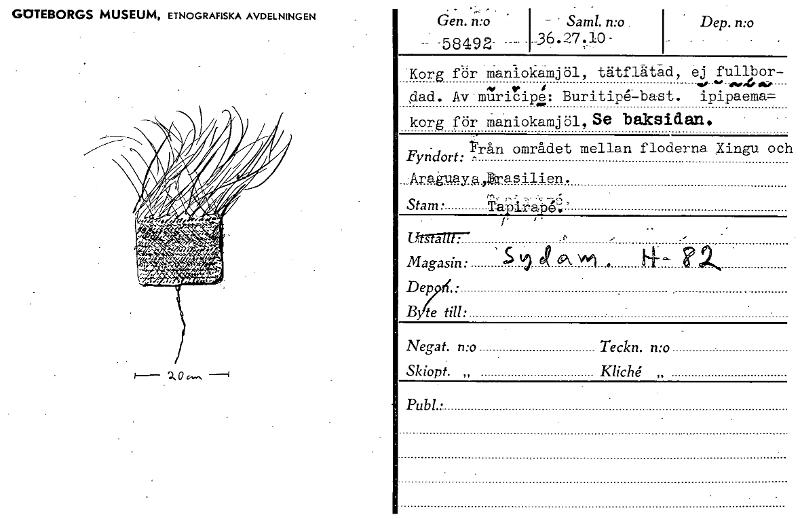 GÖTEBORGS MUSEUM, ETNOGRAFISKA AVDELNINGEN
Gen. n:o Saml. n:o Dep. n:o
58492 36.27.10
Korg för maniokamjöl, tätflätad, ej fullbor-
dad. Av mũricĭpé: Buritipé-bast. ĭpĭpãẽmã=
korg för maniokamjöl, Se baksidan.
Fyndort: Från området mellan floderna Xingu och
Araguaya, Brasilien.
Stam: Tapirapé.
Utställt:
Magasin: Sydam. H-82
Depon.:
Byte till:
Negat. n:o Teckn. n:o
Skiopt. „ Kliché „
Publ.:
20 cm